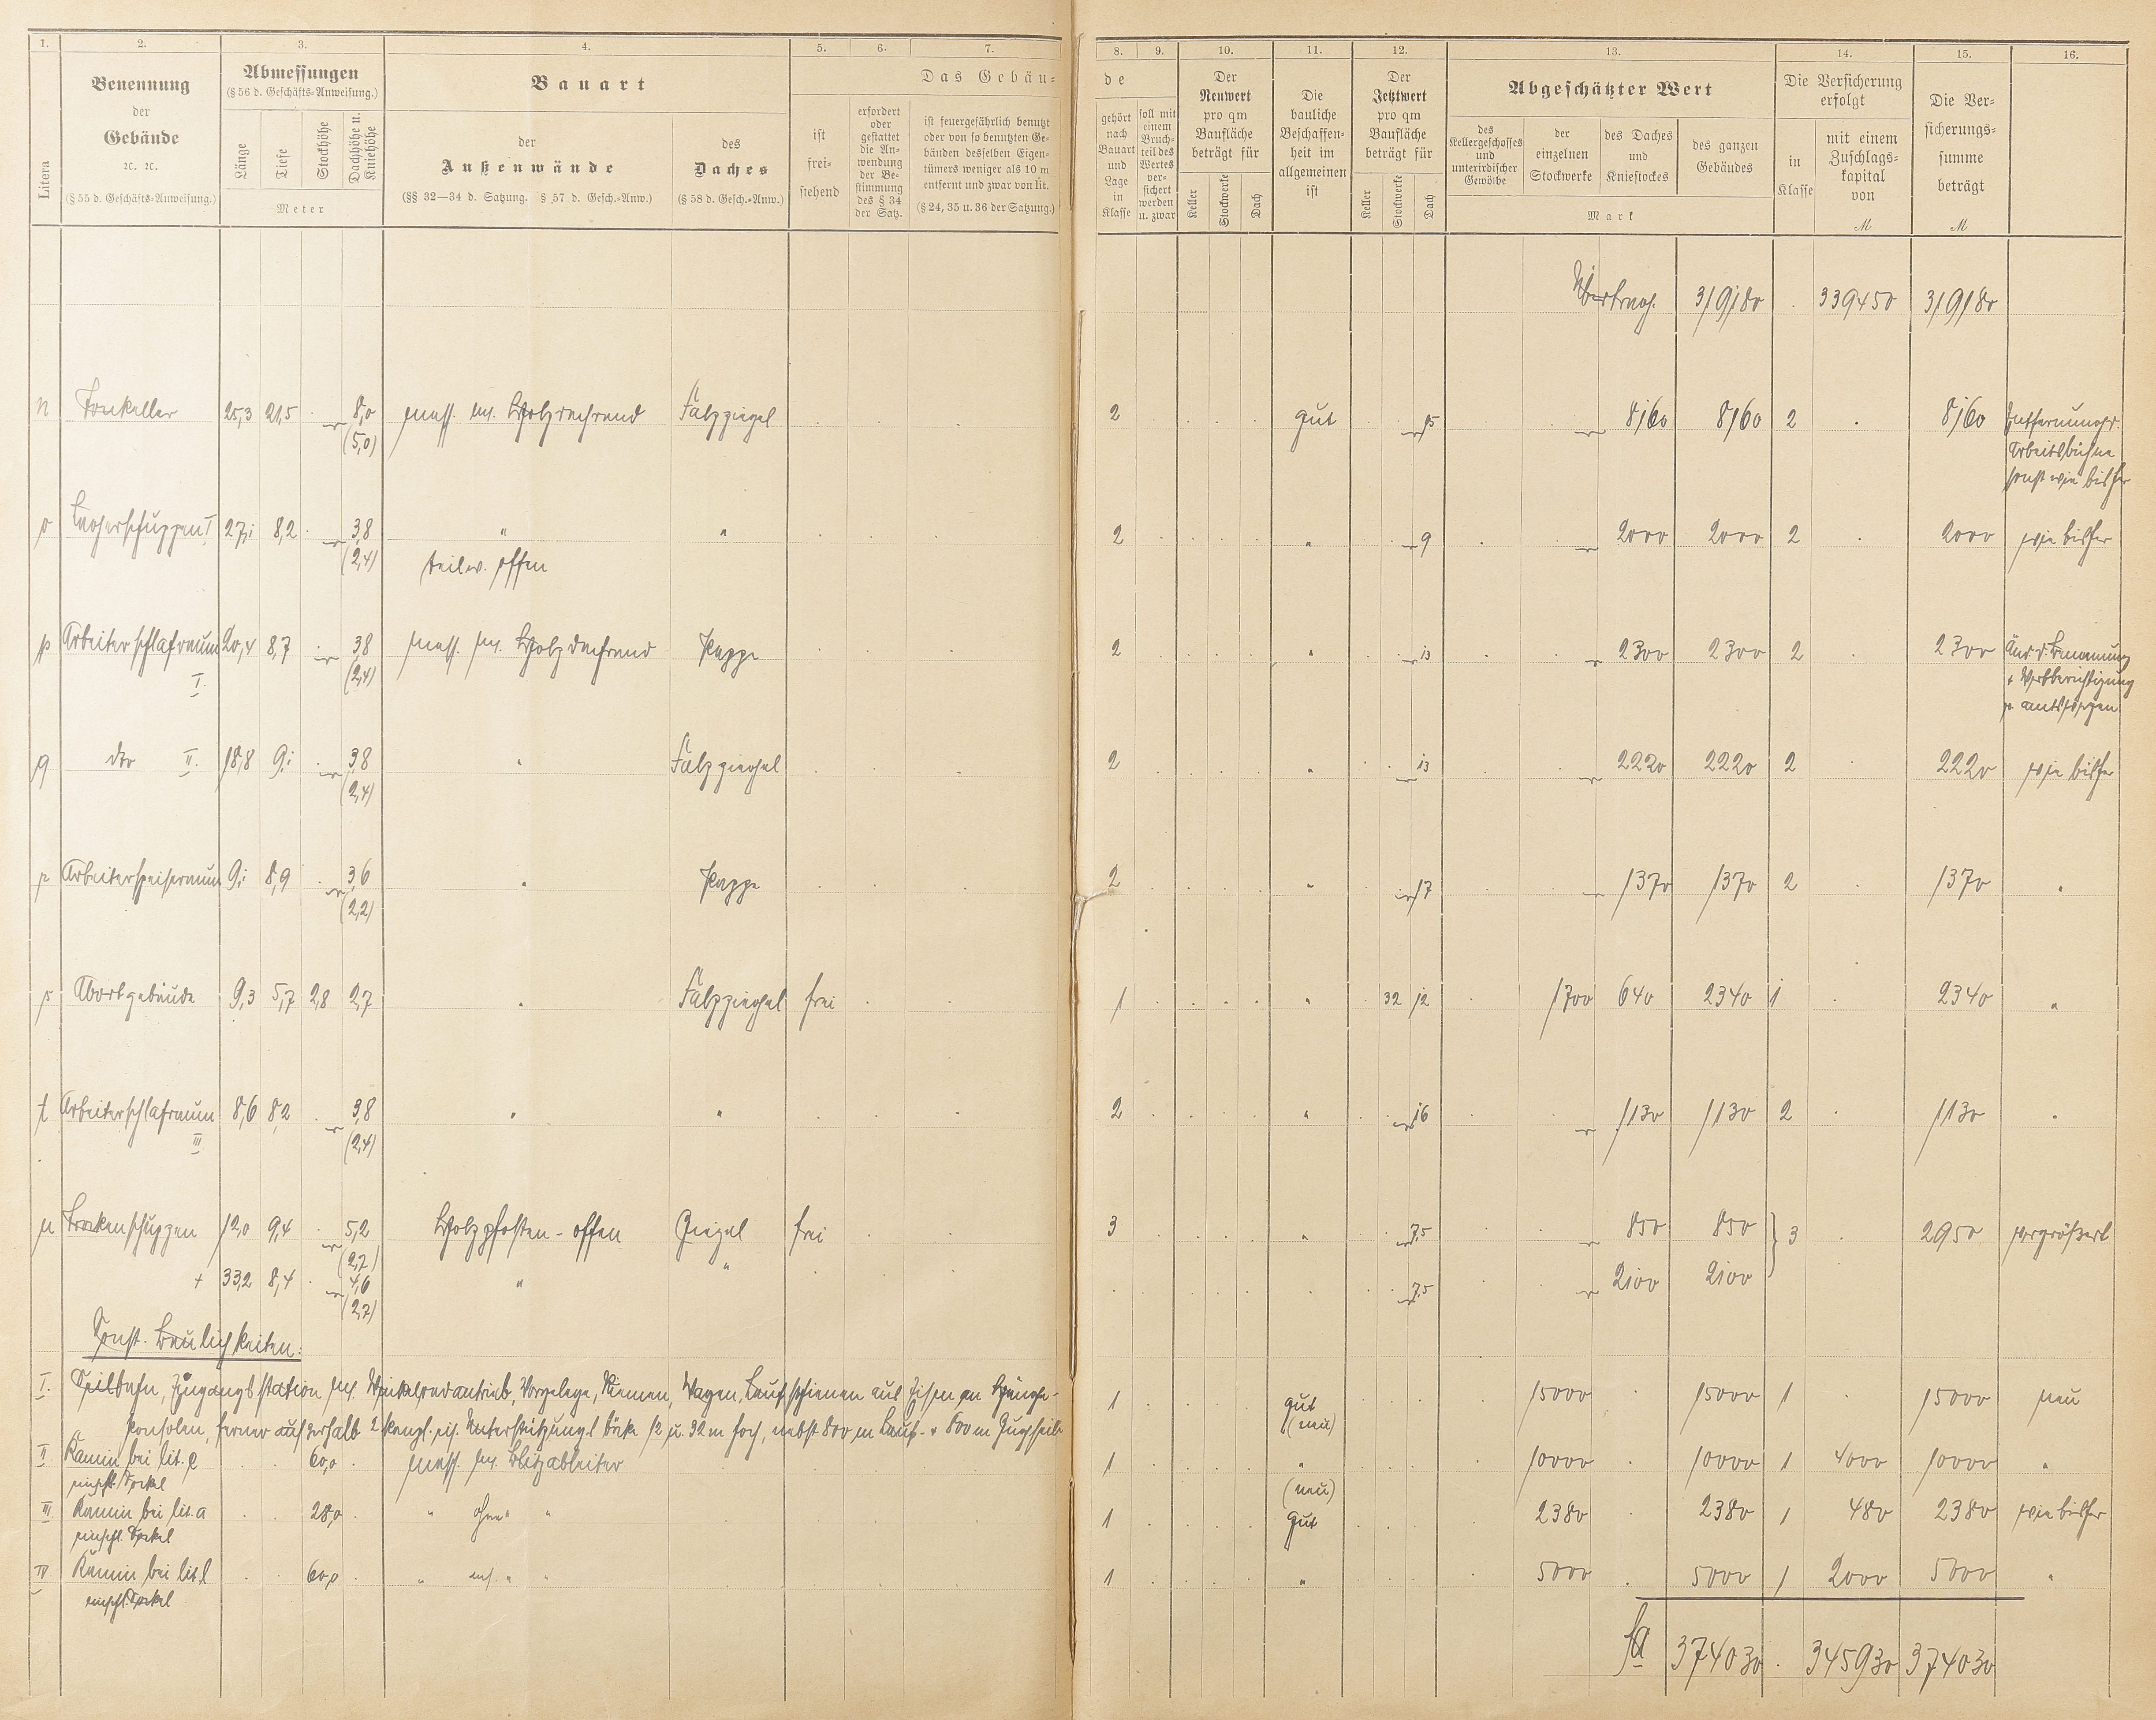 1. 2. 3. 4. 5. 6. 7. 8. 9. 10. 11. 12. 13. 14. 15. 16.
Litera
Benennung
der
Gebäude
ꝛc. ꝛc.
(§ 55 d. Geschäfts-Anweisung.)
Abmessungen
(§ 56 d. Geschäfts-Anweisung.)
Länge Tiefe Stockhöhe Dachhöhe u. Kniehöhe
Meter
Bauart
der
Außenwände
(§§ 32—34 d. Satzung. § 57 d. Gesch.-Anw.)
des
Daches
(§ 58 d. Gesch.-Anw.)
Das Gebäu-
ist
frei-
stehend
erfordert
oder
gestattet
die An-
wendung
der Be-
stimmung
des § 34
der Satz.
ist feuergefährlich benutzt
oder von so benutzten Ge-
bäuden desselben Eigen-
tümers weniger als 10 m
entfernt und zwar von lit.
(§ 24, 35 u. 36 der Satzung.)
de
gehört
nach
Bauart
und
Lage
in
Klasse
soll mit
einem
Bruch-
teil des
Wertes
ver-
sichert
werden
u. zwar
Der
Neuwert
pro qm
Baufläche
beträgt für
Keller Stockwerke Dach
Die
bauliche
Beschaffen-
heit im
allgemeinen
ist
Der
Jetztwert
pro qm
Baufläche
beträgt für
Keller Stockwerke Dach
Abgeschätzter Wert
des
Kellergeschosses
und
unterirdischer
Gewölbe
der
einzelnen
Stockwerke
des Daches
und
Kniestockes
des ganzen
Gebäudes
Mark
Die Versicherung
erfolgt
in
Klasse
mit einem
Zuschlags-
kapital
von
M
Die Ver-
sicherungs-
summe
beträgt
M
Übertrag. 319180 . 339450 319180
n Tonkeller 25,3 21,5 . 8,0 mass. m. Holzdachrand Falzziegel 2 gut 15 8160 8160 2 . 8160 Entfernung d.
(5,0) Arbeitsbühne
sonst wie bisher
o Lagerschuppen I 27,1 8,2 . 3,8 " " 2 " 9 2000 2000 2 . 2000 wie bisher
(2,4) teilw. offen
p Arbeiterschlafraum 20,4 8,7 . 3,8 mass. m. Holzdachrand Pappe 2 " 13 2300 2300 2 . 2300 Änd. d. Benennung
I. (2,4) + Wertberichtigung
v. amtswegen
q dto II. 18,8 9,1 . 3,8 " Falzziegel 2 " 13 2220 2220 2 . 2220 wie bisher
(2,4)
r Arbeiterspeiseraum 9,1 8,9 . 3,6 " Pappe 2 " 17 1370 1370 2 . 1370 "
(2,2)
s Abortgebäude 9,3 5,7 2,8 2,7 " Falzziegel frei 1 " 32 12 1700 640 2340 1 . 2340 "
t Arbeiterschlafraum 8,6 8,2 . 3,8 " " 2 " 16 1130 1130 2 . 1130 "
III (2,4)
u Trockenschuppen 12,0 9,4 . 5,2 Holzpfosten - offen Ziegel frei 3 " 7,5 850 850 } 3 . 2950 vergrößert
(2,7)
+ 33,2 8,4 . 4,6 " " 7,5 2100 2100
(2,7)
Sonst. Baulichkeiten:
I. Seilbahn, Zugangsstation m. Winkelradantrieb, Vorgelege, Riemen, Wagen, Laufschienen aus Eisen an Hänge- 1 gut 15000 . 15000 1 . 15000 neu
konsolen, ferner außerhalb 2 Unterstützungsböcke 12 u. 32 m hoch, nebst 800 m Lauf- + 800 m Zugseile (neu)
II Kamin bei lit. e 60,0 . mass. m. Blitzableiter 1 " 10000 . 10000 1 4000 10000 "
einschl. Sockel (neu)
III Kamin bei lit. a 28,0 . " ohne " 1 gut 2380 2380 1 480 2380 wie bisher
einschl. Sockel
IV Kamin bei lit. l 60,0 . " m. " 1 " 5000 . 5000 1 2000 5000 "
einschl. Sockel
Sa 374030 . 345930 374030